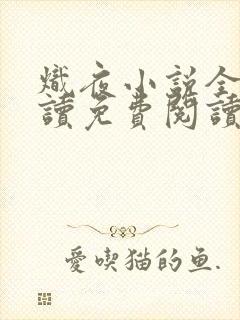 熾夜小說全
讀免費閱讀
愛喫猫的鱼.